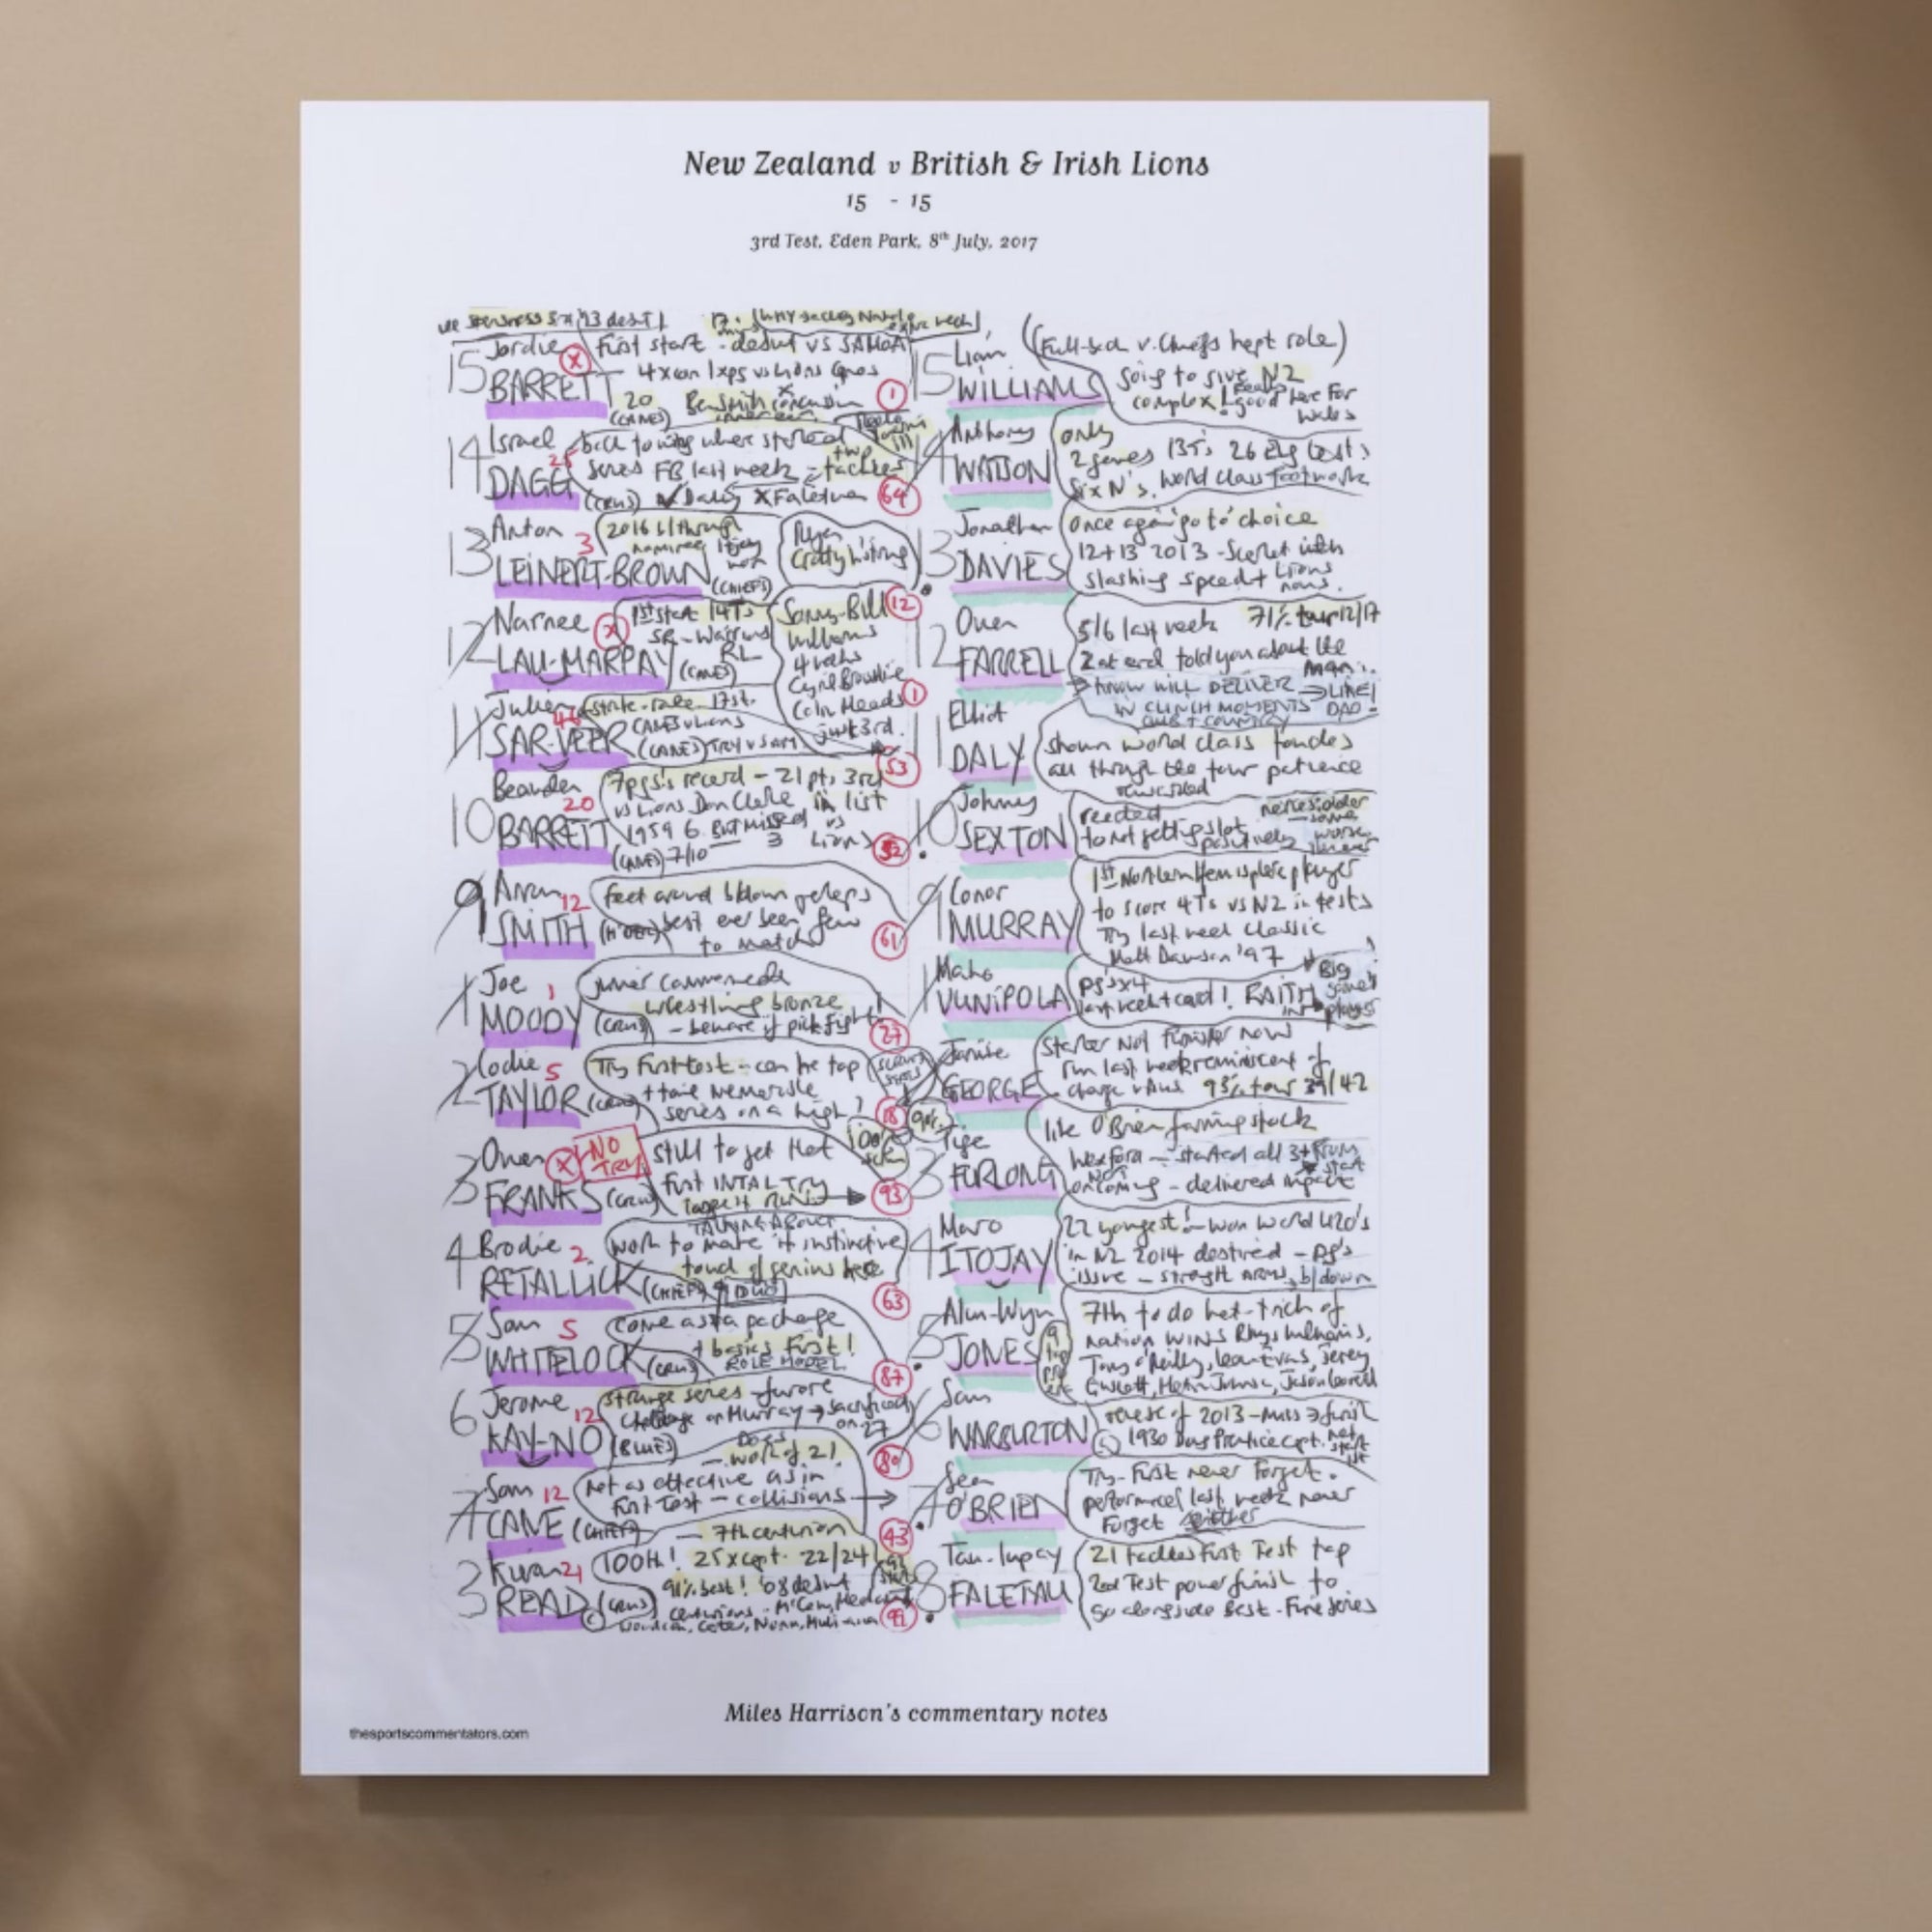 New Zealand v British & Irish Lions
15 - 15
3rd Test, Eden Park, 8th July, 2017
15 Jordie BARRETT X
First start - debut vs SAMOA
20 (CANES)
1
14 Israel DAGG 25
back to wing where started
series FB last week - two tackles
(CRUS)
64
13 Anton 3 LEINERT-BROWN
2016 b/through
nominee
(CHIEFS)
Ryan Crotty h'string
12
12 Narnee X LAU-MARPAY
1st start 14Ts
SR - Warriors RL
(CANES)
Sonny-Bill Williams
4 weeks
Cyril Brownlie
Colin Meads
just 3rd.
1
11 Julian 46 SAR-VEER
strike-rate
CANES v Lions
(CANES) TRY v SAM
53
10 Beauden 20 BARRETT
7pgs's record - 21 pts 3rd
vs Lions Don Clarke in list
1959 6 BUT MISSED 3 vs Lions
(CANES) 7/10
52
9 Aaron 12 SMITH
feet around b/down perhaps
best ever seen few
to match
61
1 Joe 1 MOODY
junior commonwealth
wrestling bronze
(CRUS) - beware if pick fight!
27
2 Codie 5 TAYLOR
Try first test - can he top
+ take memorable
series on a high?
(CRUS)
18
3 Owen X FRANKS
NO TRY
still to get that
first INTAL TRY
(CRUS)
93
4 Brodie 2 RETALLICK
TALKING ABOUT
work to make it instinctive
touch of genius here
(CHIEFS)
63
5 Sam 5 WHITELOCK
come as a package
+ basics first!
ROLE MODEL
(CRUS)
87
6 Jerome 12 KAY-NO
strange series - furore
challenge on Murray → sacrificed
on 27
(BLUES)
80
7 Sam 12 CANE
DOES - work of 2!
Not as effective as in
First Test - collisions →
(CHIEFS)
43
Kieran 21 READ
- 7th centurion
100th! 25xcapt. 22/24
91% best! '08 debut
(CRUS)
centurions - McCaw, Mealamu
Woodcock, Carter, Nonu, Muliaina
15 Liam WILLIAMS
(Full-back v. Chiefs kept role)
going to give NZ
complex! good here for
Wales
14 Anthony WATSON
only
2 games 13Ts 26 Eng tests
Six N's. World class footwork
13 Jonathan DAVIES
once again 'go to' choice
12+13 2013 - Scarlet with
slashing speed + Lions
nous.
12 Owen FARRELL
5/6 last week 71% tour 12/17
2 at end told you about the
man..
→ KNOW WILL DELIVER → LIKE!
IN CLINCH MOMENTS DAD!
CLUB + COUNTRY
11 Elliot DALY
shown world class touches
all through the tour patience
rewarded
10 Johnny SEXTON
reacted
to not getting slot
positively
9 Conor MURRAY
1st Northern Hemisphere player
to score 4Ts vs NZ in tests
Try last week classic
Matt Dawson '97
1 Mako VUNIPOLA
pg's x4
last week + card! FAITH
IN →
BIG game player
2 Jamie GEORGE
starter not finisher now
run last week reminiscent of
charge v Aus 93% tour 39/42
3 Tige FURLONG
90%
like O'Brien farming stock
Wexford - started all 3
oncoming - delivered impact
4 Maro ITOJAY
22 youngest! - won World U20's
in NZ 2014 destined - pg's
issue - strength ARMS, b/down
5 Alun-Wyn JONES
7th to do hat-trick of
nation WINS Rhys Williams,
Tony O'Reilly, Ieuan Evans, Jerey
Guscott, Martin Johnson, Jason Leonard
6 Sam WARBURTON
reverse of 2013 - miss → finish
1930 Doug Prentice capt. not
start
1st
7 Sean O'BRIEN
Try - First never forget.
performance last week never
forget either
8 Tau-lupay FALETAU
21 tackles First Test top
2nd Test power finish to
go alongside Best - Fine series
Miles Harrison's commentary notes
thesportscommentators.com